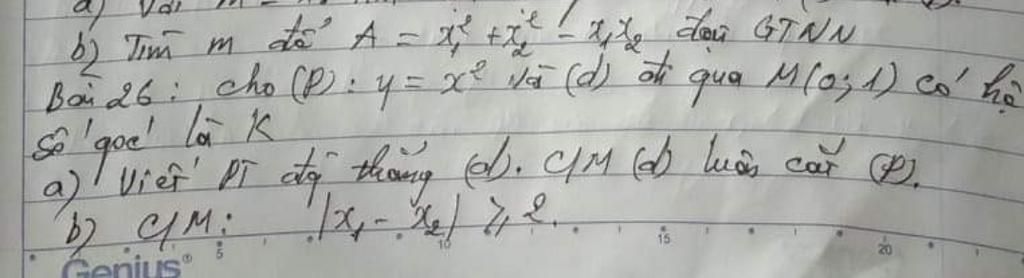 a) Với m
b) Tìm m để A = x₁² + x₂² - x₁x₂ đạt GTNN
Bài 26: cho (P): y = x² và (d) đi qua M(0; 1) có hệ
số góc là K
a) Viết PT đg thẳng (d). C/M (d) luôn cắt (P).
b) C/M: |x₁ - x₂| ≥ 2.
5 10 15 20
Genius®